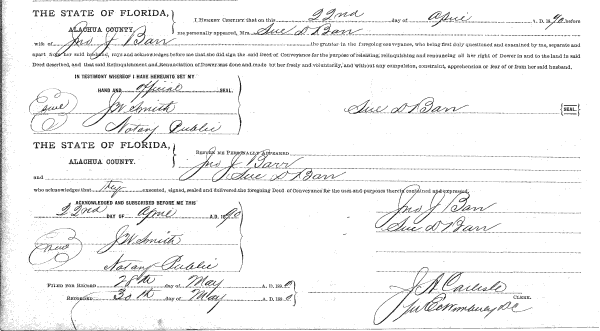 THE STATE OF FLORIDA,
ALACHUA COUNTY.
I HEREBY CERTIFY that on this 22nd day of April A. D. 1890 before
me personally appeared, Mrs. Sue D Barr
wife of Jno J Barr the grantor in the foregoing conveyance, who being first duly questioned and examined by me, separate and
apart from her said husband, says and acknowledges before me that she did sign the said Deed of Conveyance for the purpose of releasing, relinquishing and renouncing all her right of Dower in and to the land in said
Deed described, and that said Relinquishment and Renunciation of Dower was done and made by her freely and voluntarily, and without any compulsion, constraint, apprehension or fear of or from her said husband.
IN TESTIMONY WHEREOF I HAVE HEREUNTO SET MY
HAND AND official SEAL.
J W Smith
Notary Public
Sue D Barr SEAL.
THE STATE OF FLORIDA,
ALACHUA COUNTY.
BEFORE ME PERSONALLY APPEARED
Jno J. Barr
and Sue D Barr
who acknowledges that they executed, signed, sealed and delivered the foregoing Deed of Conveyance for the uses and purposes therein contained and expressed.
ACKNOWLEDGED AND SUBSCRIBED BEFORE ME THIS
22nd DAY OF April A.D. 1890
J W Smith
Notary Public
Jno J. Barr
Sue D Barr
FILED FOR RECORD 28th day of May A. D. 1890
RECORDED 30th day of May A.D. 1890
J A Carlisle
CLERK.
D C